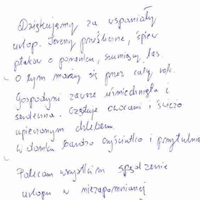 Dziękujemy za wspaniały
urlop. Tereny prześliczne, śpiew
ptaków o poranku, szumiący las.
O tym marzy się przez cały rok.
Gospodyni zawsze uśmiechnięta i
serdeczna. Częstuje owocami i świeżo
upieczonym chlebem.
W domku bardzo czyściutko i przytulnie.
Polecam wszystkim spędzenie
urlopu w niezapomnianej